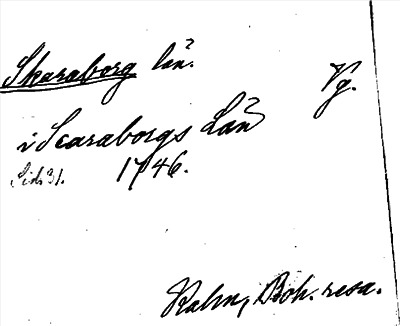 Skaraborg län.
Vg.
i Scaraborgs Län
Sid. 31. 1746.
Kalm, Boh. resa.